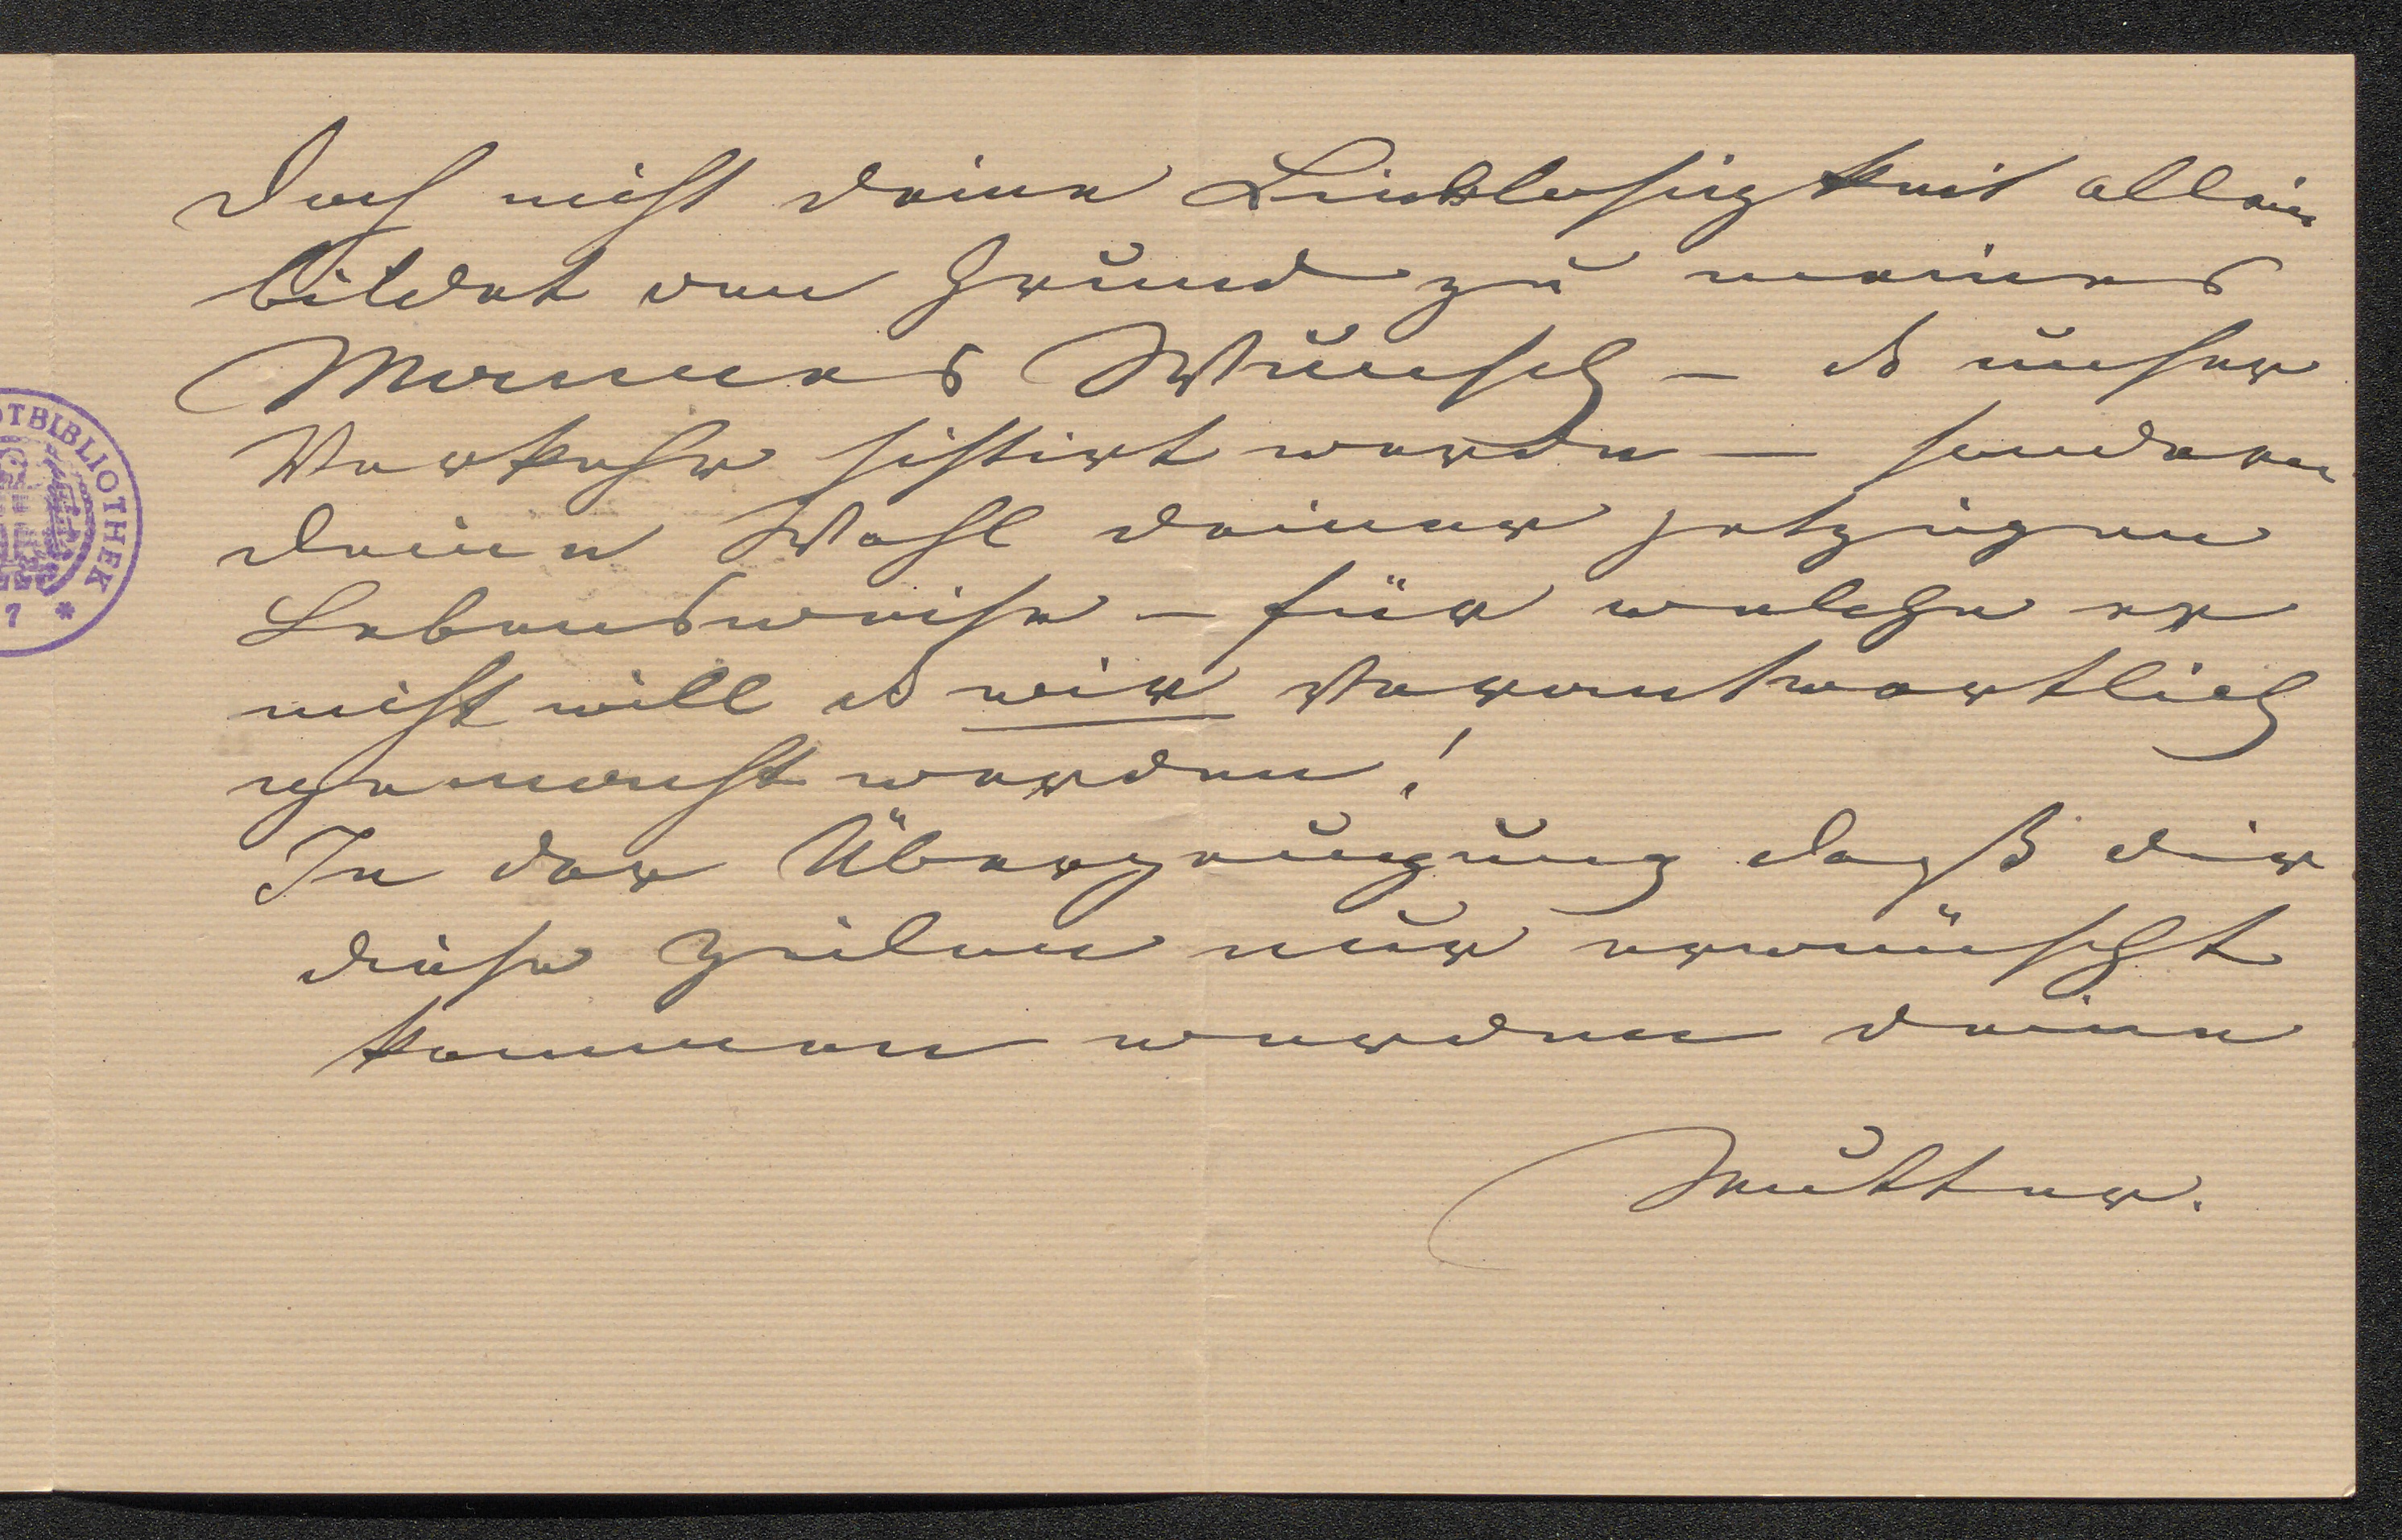 Doch nicht deine Lieblosigkeit allein
bildet den Grund zu meines
Mannes Wunsch – es unser
Verkehr sistirt werde – sondern
deine Wahl deiner jetzigen
Lebensweise – für welche er
nicht will es wir verantwortlich
gemacht werden!
In der Überzeugung daß dir
diese Zeilen nur erwünscht
kommen werden deine
Mutter.
TBIBLIOTHEK
7 *